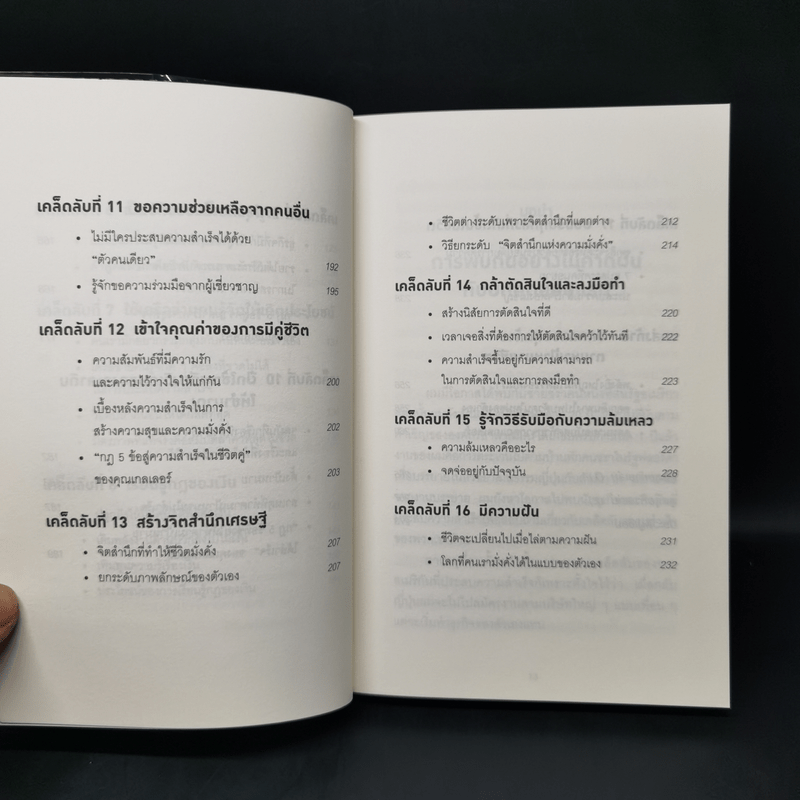 เคล็ดลับที่ 11 ขอความช่วยเหลือจากคนอื่น
• ไม่มีใครประสบความสำเร็จได้ด้วย
“ตัวคนเดียว” 192
• รู้จักขอความร่วมมือจากผู้เชี่ยวชาญ 195
เคล็ดลับที่ 12 เข้าใจคุณค่าของการมีคู่ชีวิต
• ความสัมพันธ์ที่มีความรัก
และความไว้วางใจให้แก่กัน 200
• เบื้องหลังความสำเร็จในการ
สร้างความสุขและความมั่งคั่ง 202
• “กฎ 5 ข้อสู่ความสำเร็จในชีวิตคู่” 203
ของคุณเกลเลอร์
เคล็ดลับที่ 13 สร้างจิตสำนึกเศรษฐี
• จิตสำนึกที่ทำให้ชีวิตมั่งคั่ง 207
• ยกระดับภาพลักษณ์ของตัวเอง 207
• ชีวิตต่างระดับเพราะจิตสำนึกที่แตกต่าง 212
• วิธียกระดับ “จิตสำนึกแห่งความมั่งคั่ง” 214
เคล็ดลับที่ 14 กล้าตัดสินใจและลงมือทำ
• สร้างนิสัยการตัดสินใจที่ดี 220
• เวลาเจอสิ่งที่ต้องการให้ตัดสินใจคว้าไว้ทันที 222
• ความสำเร็จขึ้นอยู่กับความสามารถ
ในการตัดสินใจและการลงมือทำ 223
เคล็ดลับที่ 15 รู้จักวิธีรับมือกับความล้มเหลว
• ความล้มเหลวคืออะไร 227
• จดจ่ออยู่กับปัจจุบัน 228
เคล็ดลับที่ 16 มีความฝัน
• ชีวิตจะเปลี่ยนไปเมื่อไล่ตามความฝัน 231
• โลกที่คนเรามั่งคั่งได้ในแบบของตัวเอง 232